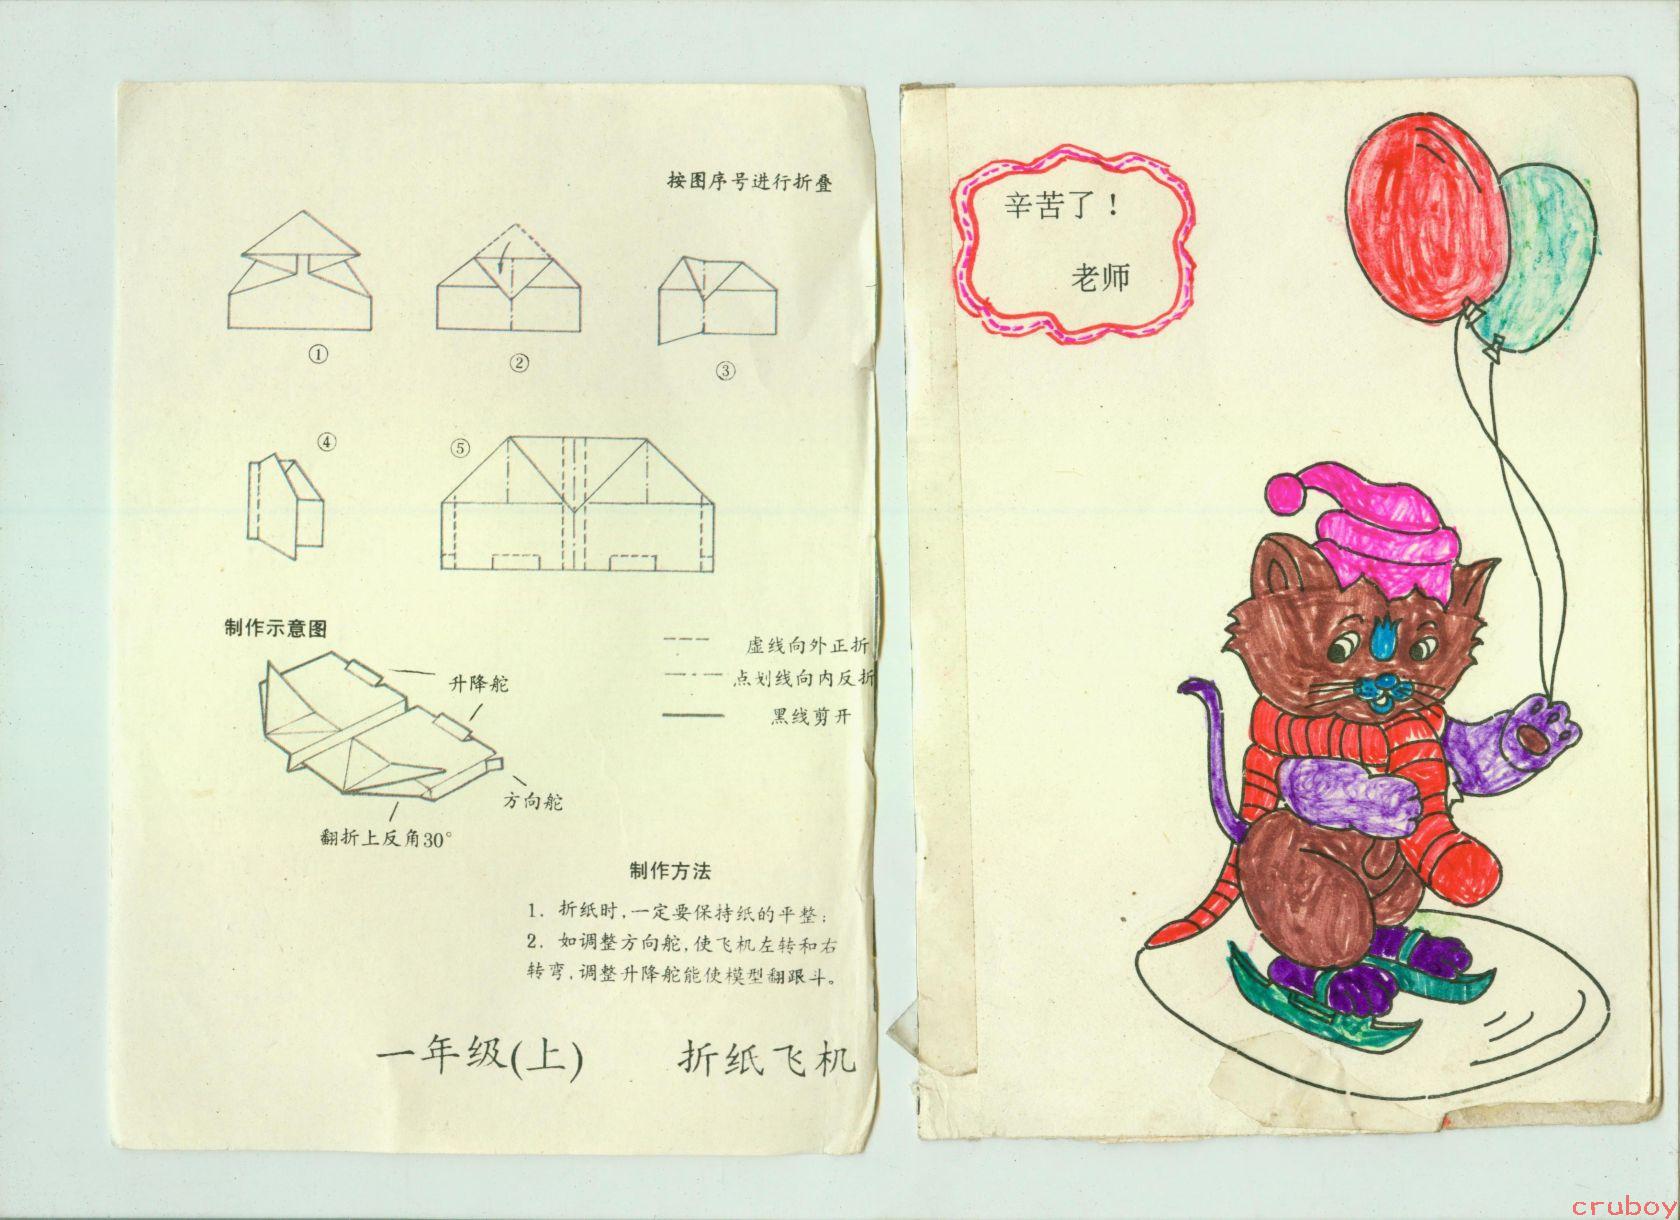 按图序号进行折叠
①
②
③
④
⑤
制作示意图
升降舵
方向舵
翻折上反角30°
虚线向外正折
点划线向内反折
黑线剪开
制作方法
1. 折纸时,一定要保持纸的平整;
2. 如调整方向舵,使飞机左转和右
转弯,调整升降舵能使模型翻跟斗。
一年级(上) 折纸飞机
辛苦了！
老师
cruboy